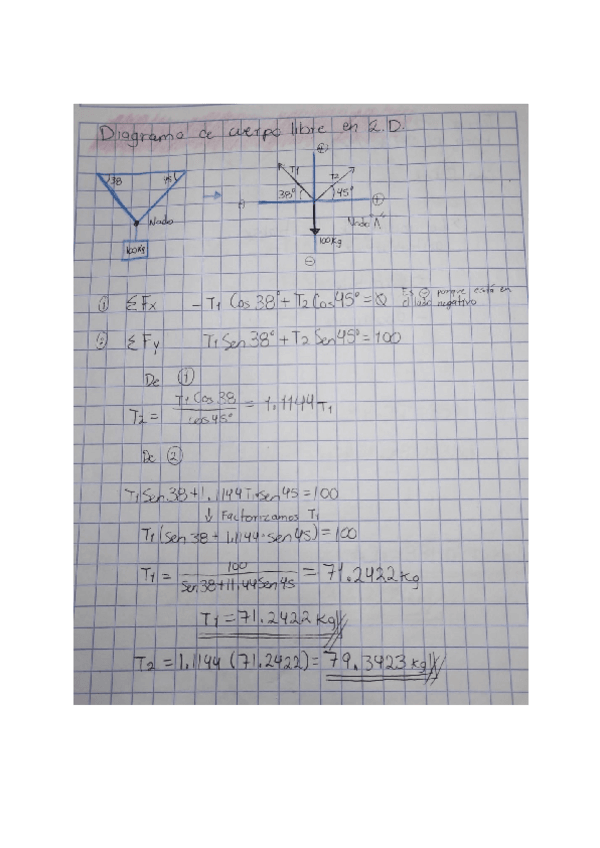 Diagrama de cuerpo libre en 2.D.
38 45
Nodo
100kg
⊕
T1 T2
38° 45°
⊕
Nodo "A"
100kg
⊖
① ΣFx -T1 Cos38° + T2 Cos45° = 0 Es ⊖ porque está en
el lado negativo
② ΣFy T1 Sen38° + T2 Sen45° = 100
De ①
T2 = T1 Cos38 / cos45° = 1.1144 T1
De ②
T1 Sen38 + 1.1144T1·sen45 = 100
↓ Factorizamos T1
T1 (Sen38 + 1.1144·sen45) = 100
T1 = 100 / Sen38+11.44Sen45 = 71.2422 kg
T1 = 71.2422 kg
T2 = 1.1144 (71.2422) = 79.3923 kg